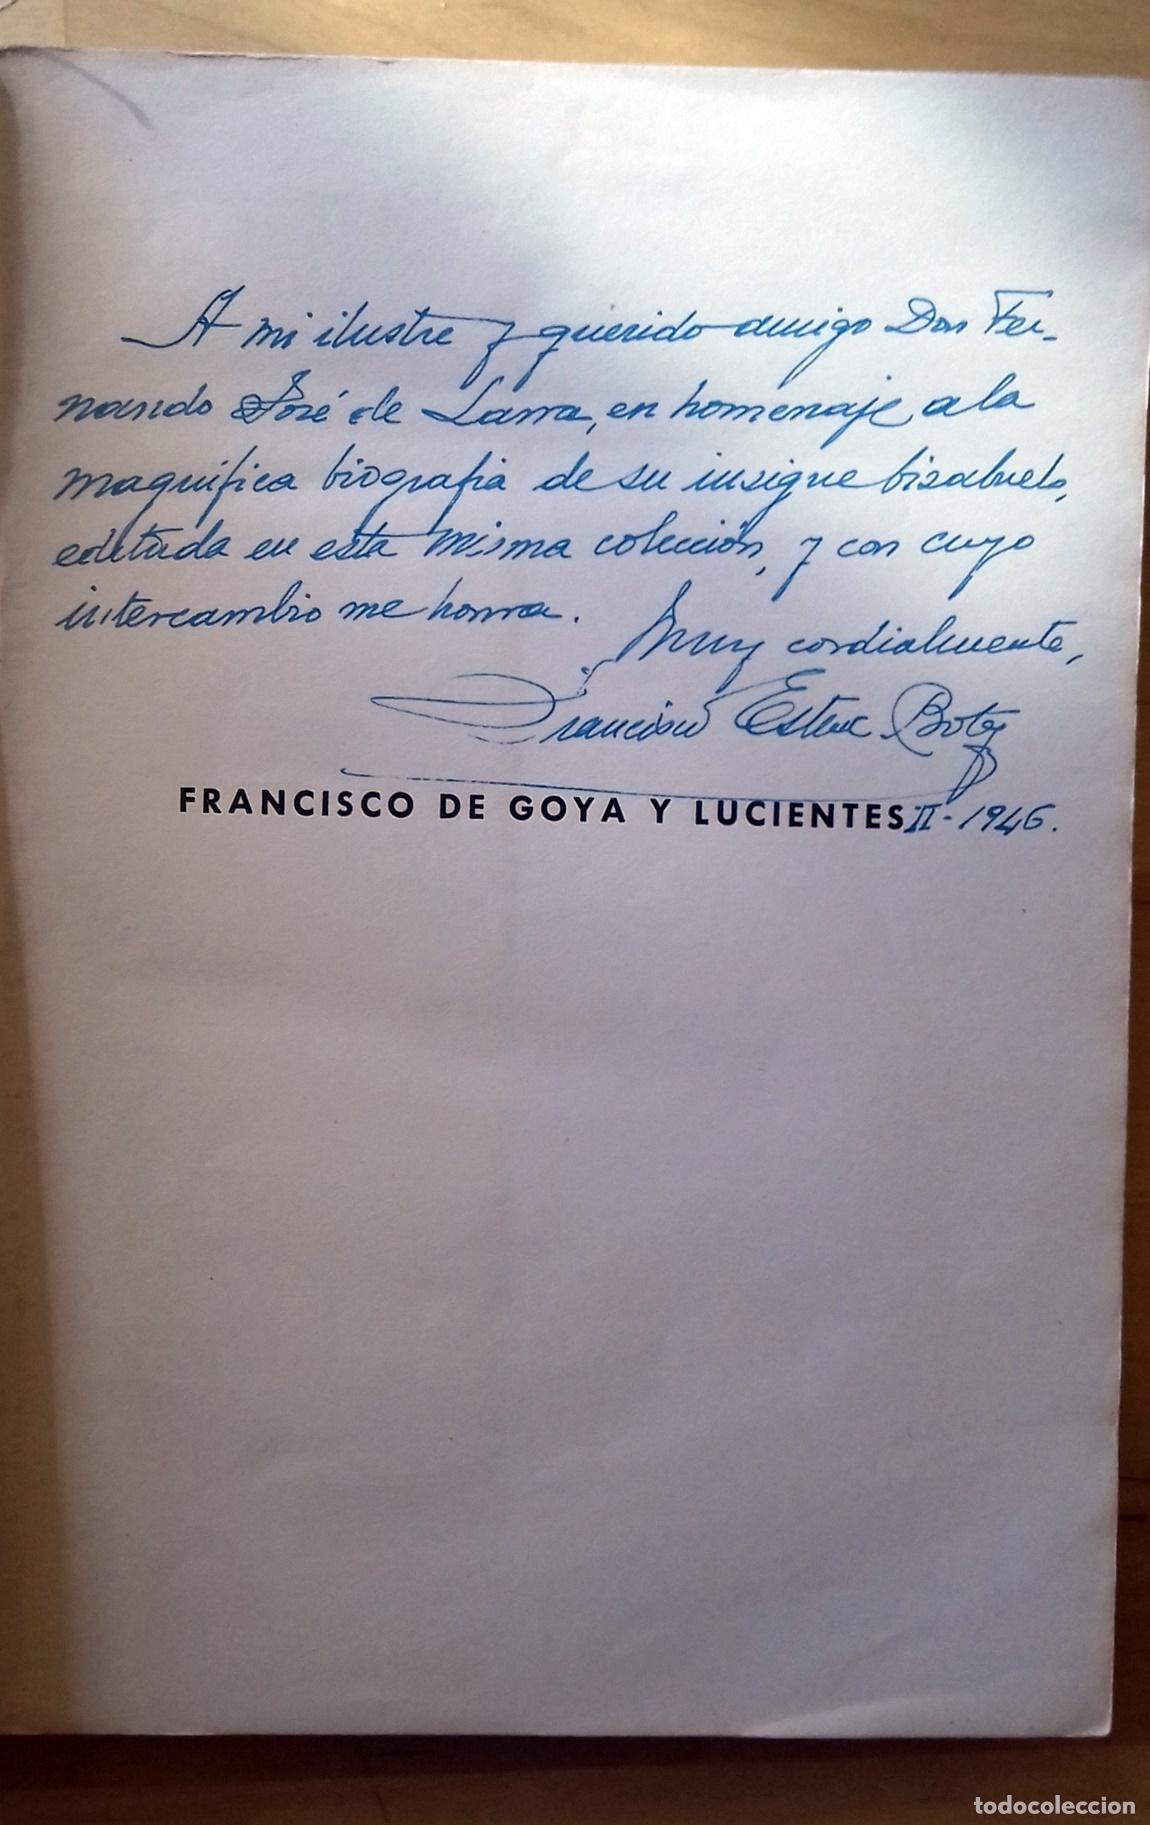 A mi ilustre y querido amigo Don Fer-
nando José de Larra, en homenaje a la
magnífica biografia de su insigne bisabuelo,
editada en esta misma colección, y con cuyo
intercambio me honra.
Muy cordialmente,
Francisco Esteve Botey
FRANCISCO DE GOYA Y LUCIENTES
II-1946.
todocoleccion